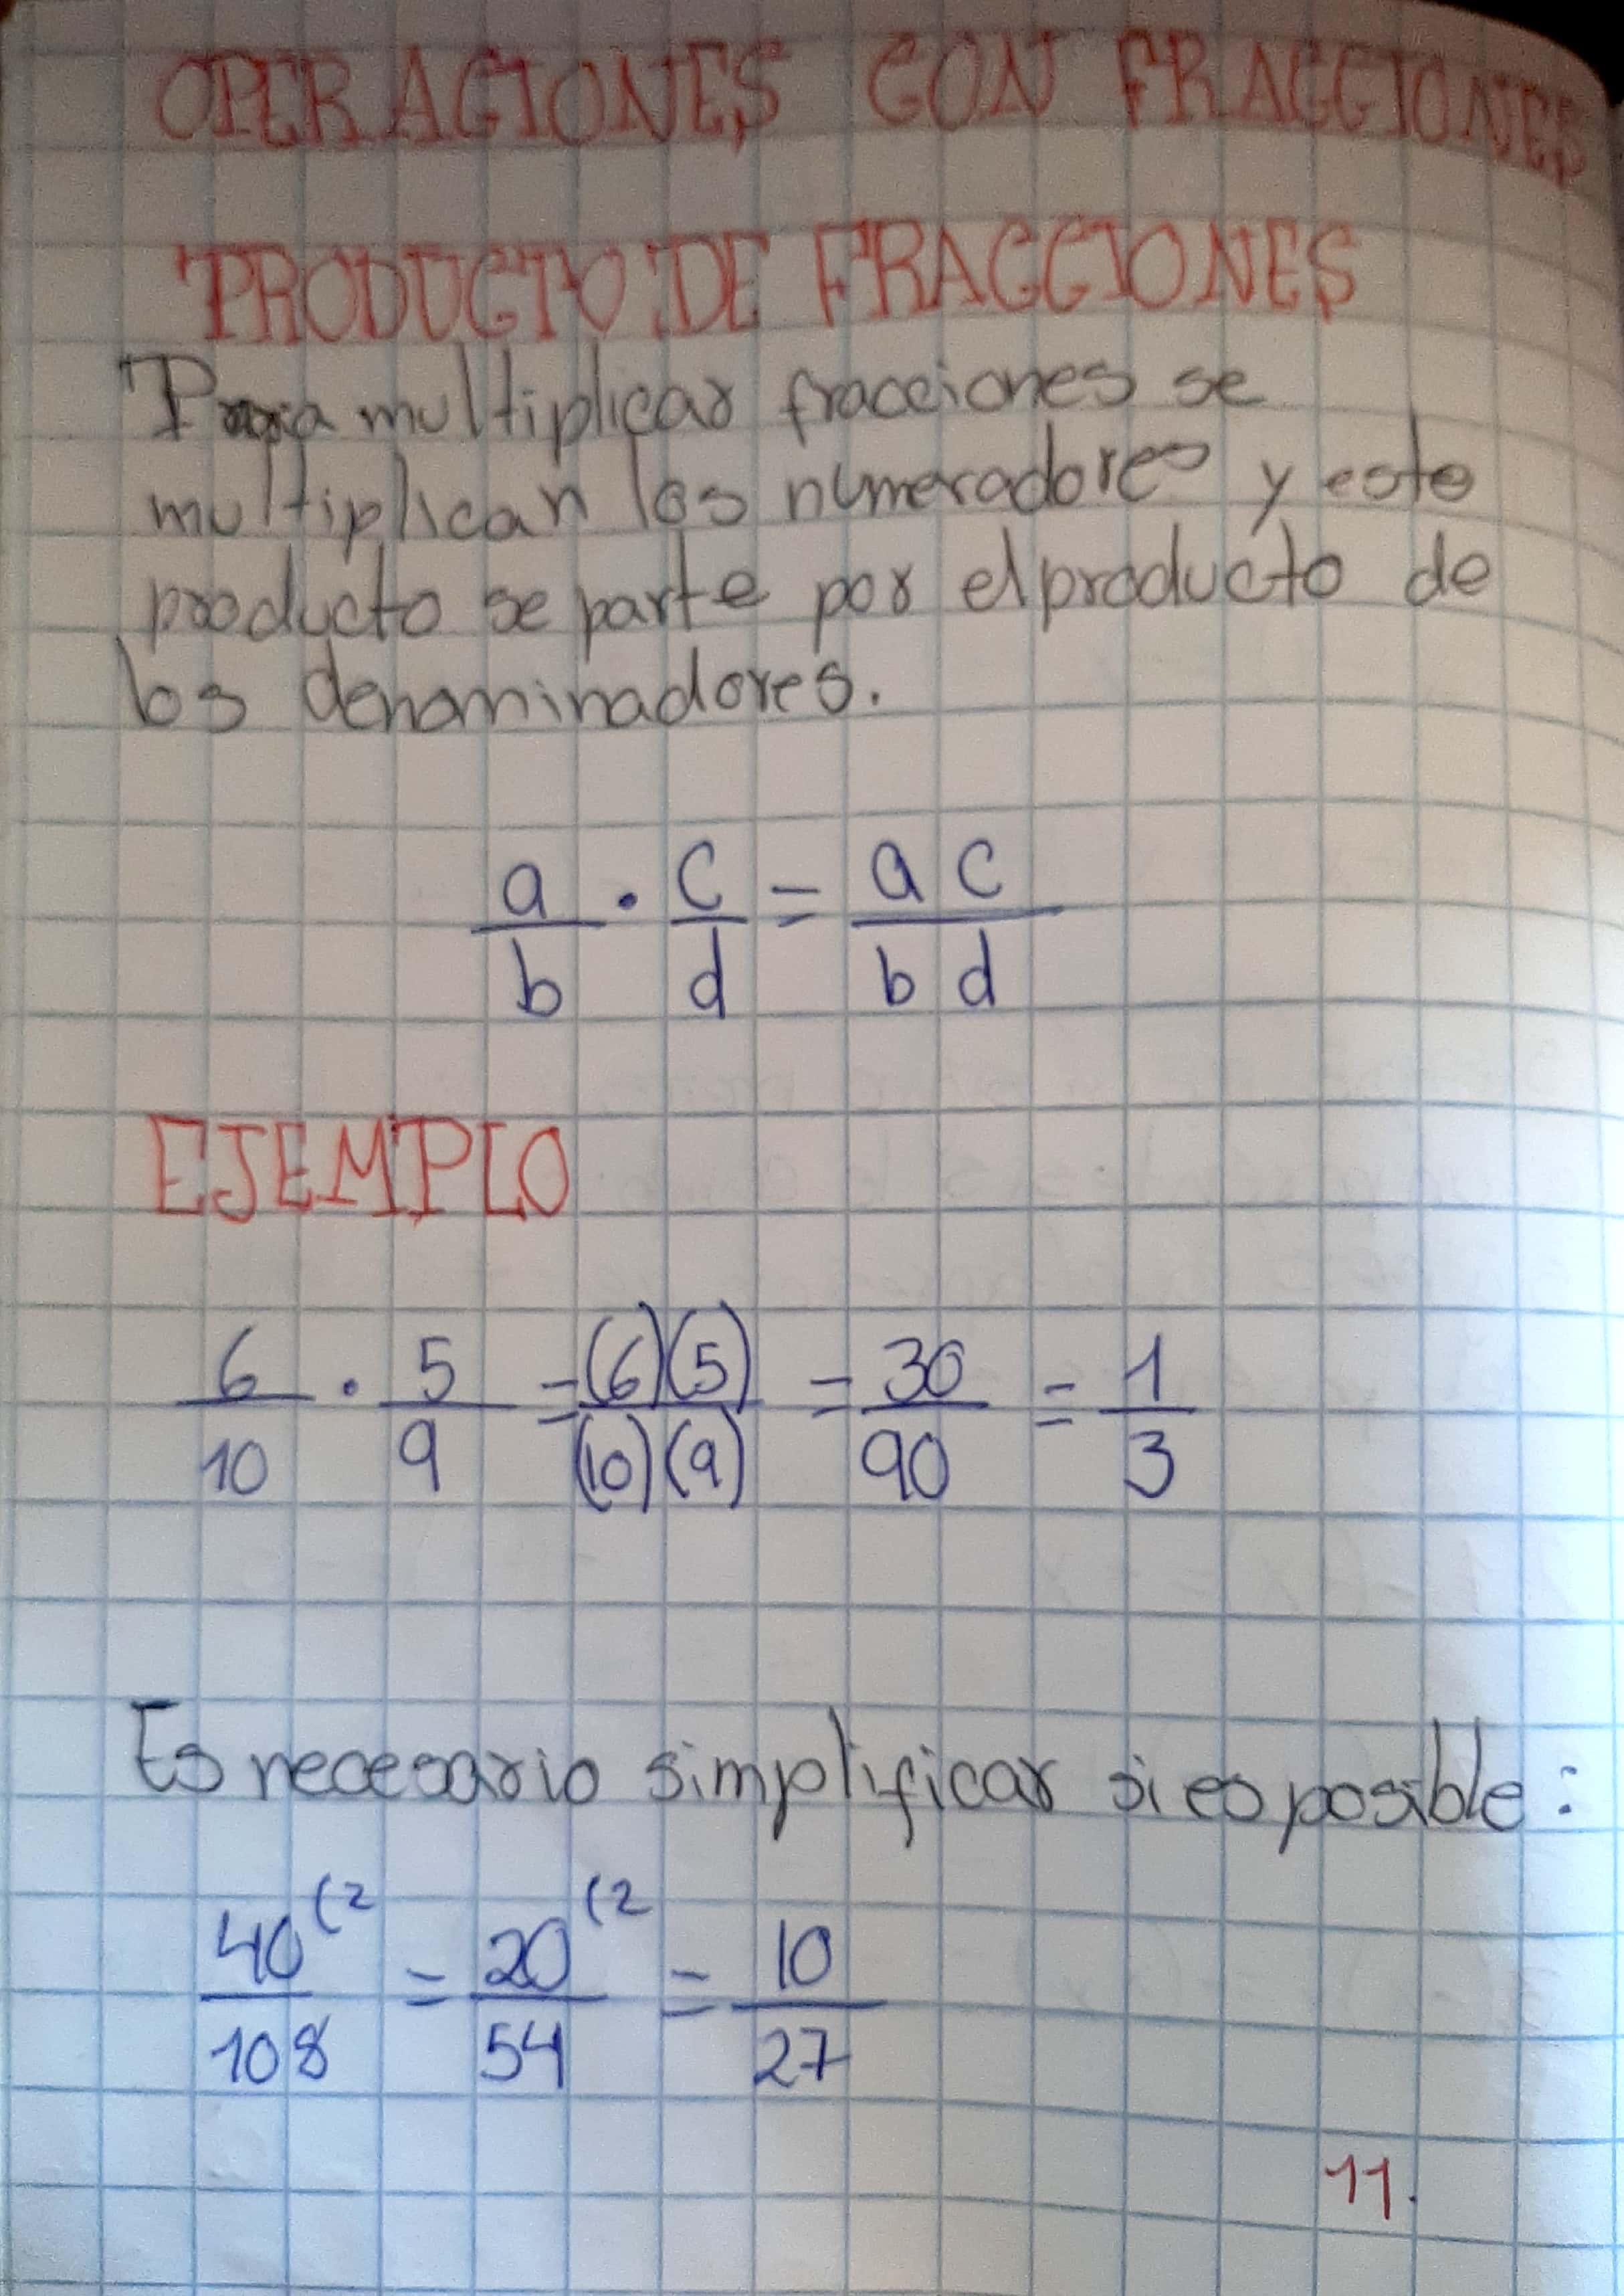 OPERACIONES CON FRACCIONES
PRODUCTO DE FRACCIONES
Para multiplicar fracciones se
multiplican los numeradores y este
producto se parte por el producto de
los denominadores.
a/b · c/d = a c/b d
EJEMPLO
6/10 · 5/9 = (6)(5)/(10)(9) = 30/90 = 1/3
Es necesario simplificar si es posible:
40/108 (2 = 20/54 (2 = 10/27
11.